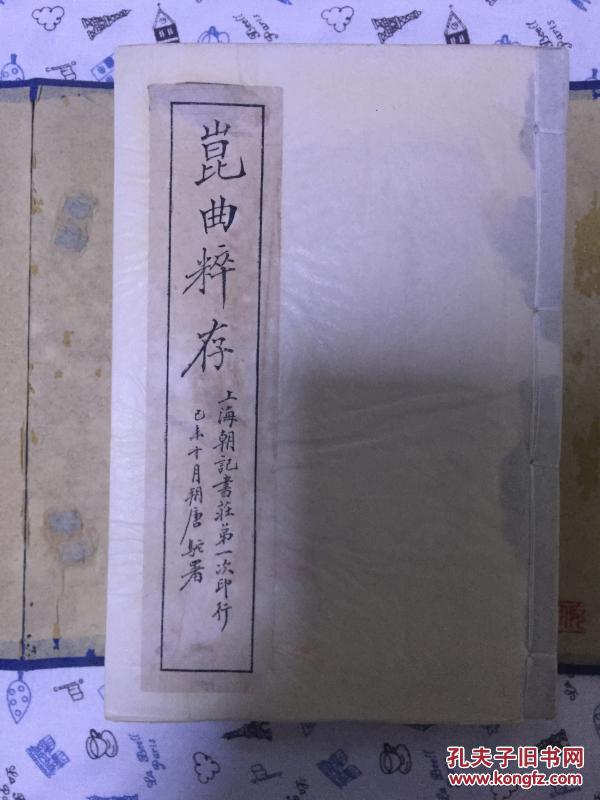 崑曲粹存
上海朝記書莊第一次印行
己未十月朔唐駝署
孔夫子旧书网
www.kongfz.com